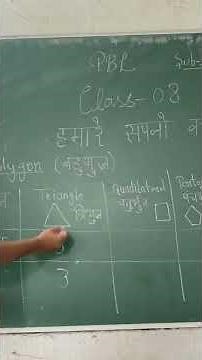 PBL Sub-
Class-03
हमारे सपनो
lygon (बहुभुज)
Triangle
त्रिभुज
Quadrilateral
चतुर्भुज
3